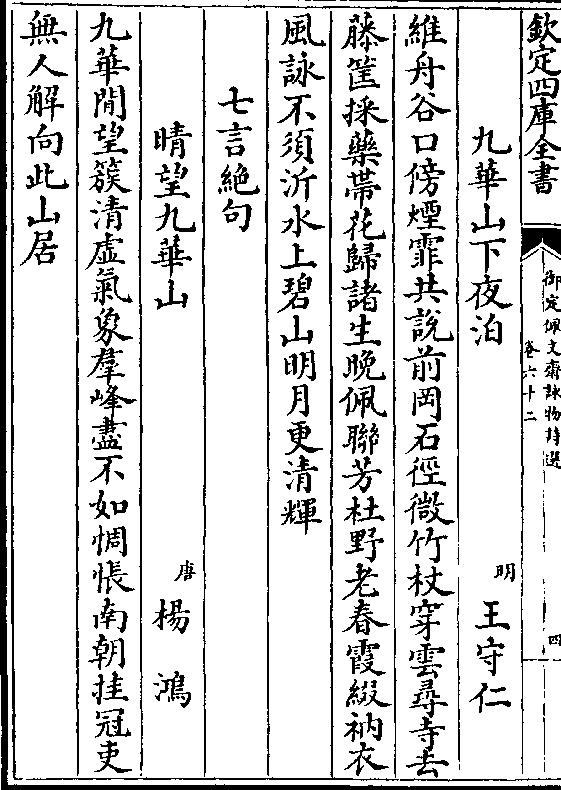 欽定四庫全書
御定佩文齋詠物詩選
卷六十二
四
九華山下夜泊
明 王守仁
維舟谷口傍煙霏共說前岡石徑微竹杖穿雲尋寺去
藤筐採藥帶花歸諸生晚佩聯芳杜野老春霞綴衲衣
風詠不須沂水上碧山明月更清輝
七言絶句
晴望九華山
唐 楊鴻
九華閒望簇清虛氣象羣峰盡不如惆悵南朝挂冠吏
無人解向此山居